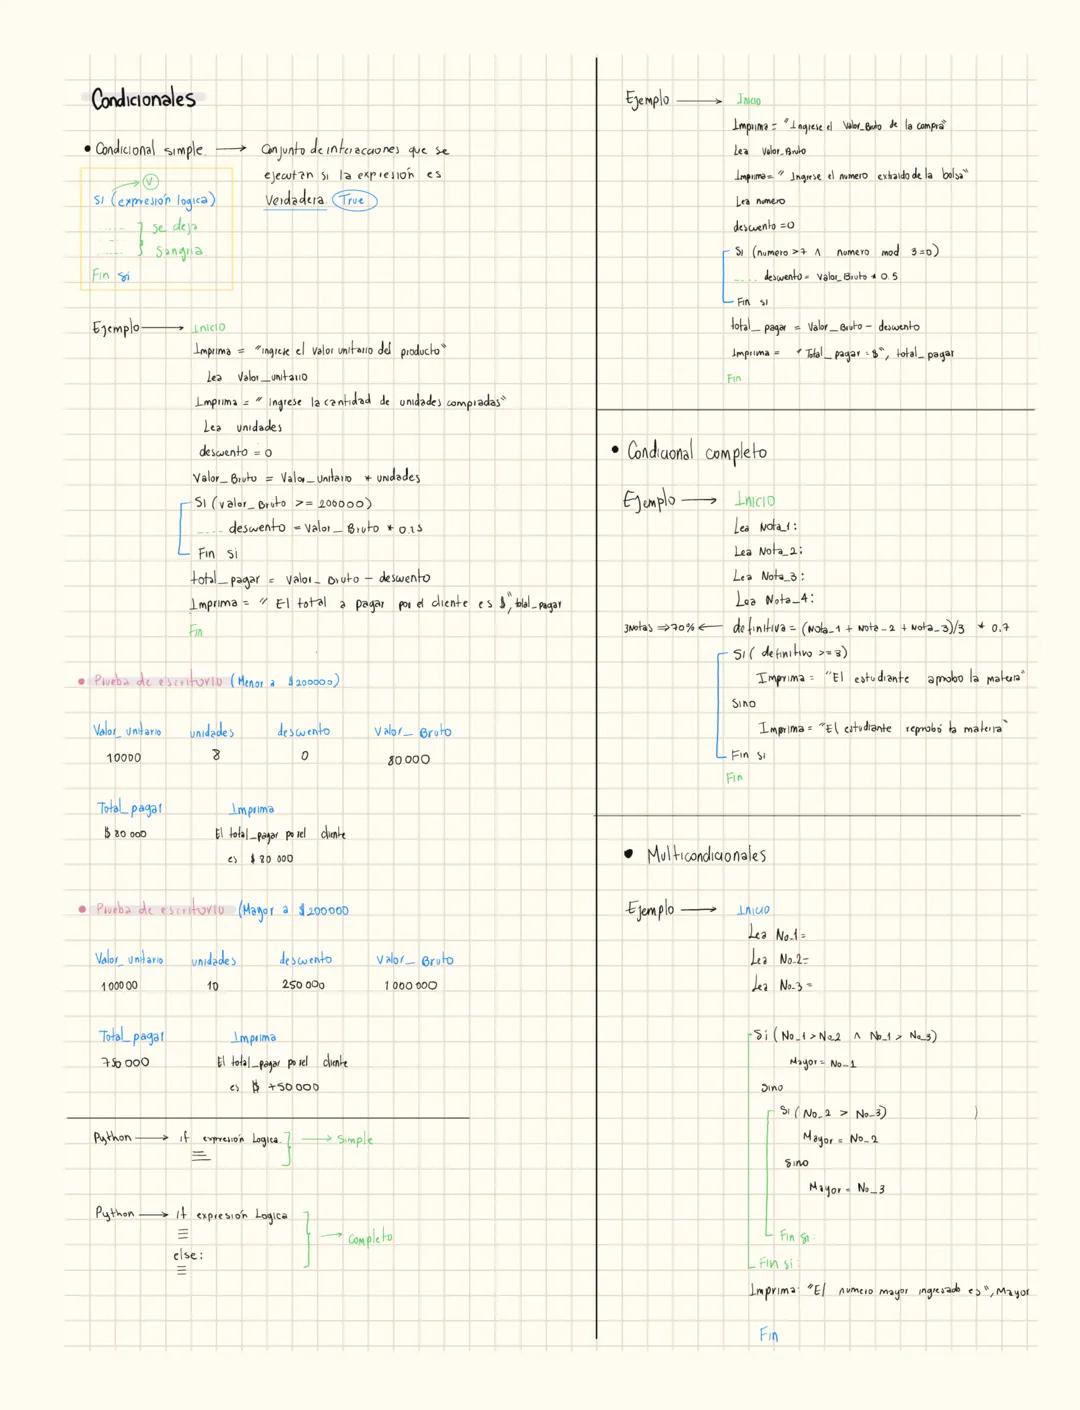 Condicionales
• Condicional simple. → Conjunto de interacciones que se
ejecutan si la expresión es
Verdadera. True
V
Si (expresión logica)
...... } se deja
...... } Sangria
Fin si
Ejemplo → Inicio
Imprima = "ingrese el valor unitario del producto"
Lea Valor_unitario
Imprima = " Ingrese la cantidad de unidades compradas"
Lea unidades
descuento = 0
Valor_Bruto = Valor_unitario * unidades
Si (valor_Bruto >= 200000)
.... descuento = Valor_Bruto *
Fin Si
total_pagar = Valor_Bruto - descuento
Imprima = " El total a pagar por el cliente es $", total_pagar
Fin
• Prueba de escritorio (Menor a $200000)
Valor_unitario unidades descuento Valor_Bruto
10000 8 0 80.000
Total_pagar Imprima
$ 80 000 El total_pagar por el cliente
es $ 80 000
• Prueba de escritorio (Mayor a $200000
Valor_unitario unidades descuento Valor_Bruto
100000 10 250 000 1 000 000
Total_pagar Imprima
750 000 El total_pagar por el cliente
es $ 750000
Python → if expresión Logica. → Simple
Python → if expresión Logica
else:
→ completo
Ejemplo → Inicio
Imprima = "Ingrese el Valor_Bruto de la compra"
Lea Valor_Bruto
Imprima = " Ingrese el numero extraido de la bolsa"
Lea numero
descuento = 0
Si (numero >7 ∧ numero mod 3=0)
.... descuento = Valor_Bruto * 0.5
Fin si
total_pagar = Valor_Bruto - descuento
Imprima = " Total_pagar = $", total_pagar
Fin
• Condicional completo
Ejemplo → Inicio
Lea Nota_1:
Lea Nota_2:
Lea Nota_3:
Lea Nota_4:
3Notas ⇒ 70% ← definitiva = (Nota_1 + Nota_2 + Nota_3)/3 * 0.7
Si ( definitivo >= 3)
Imprima = "El estudiante aprobo la materia"
Sino
Imprima = "El estudiante reprobó la materia"
Fin si
Fin
• Multicondicionales
Ejemplo → Inicio
Lea No_1 =
Lea No_2 =
Lea No_3 =
Si ( No_1 > No_2 ∧ No_1 > No_3)
Mayor = No_1
Sino
Si ( No_2 > No_3) )
Mayor = No_2
Sino
Mayor = No_3
Fin si.
Fin si.
Imprima: "El numero mayor ingresado es", Mayor
Fin